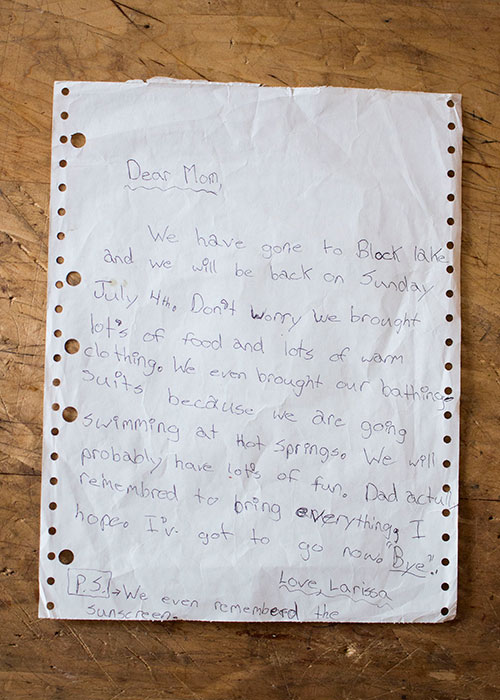 Dear Mom,
We have gone to Block lake
and we will be back on Sunday
July 4th. Don't worry we brought
lot's of food and lots of warm
clothing. We even brought our bathing
suits because we are going
swimming at Hot Springs. We will
probably have lot's of fun. Dad actully
remembred to bring everything, I
hope. I'v. got to go now. "Bye"!
Love, Larissa
P.S. → We even remembered the
sunscreen.